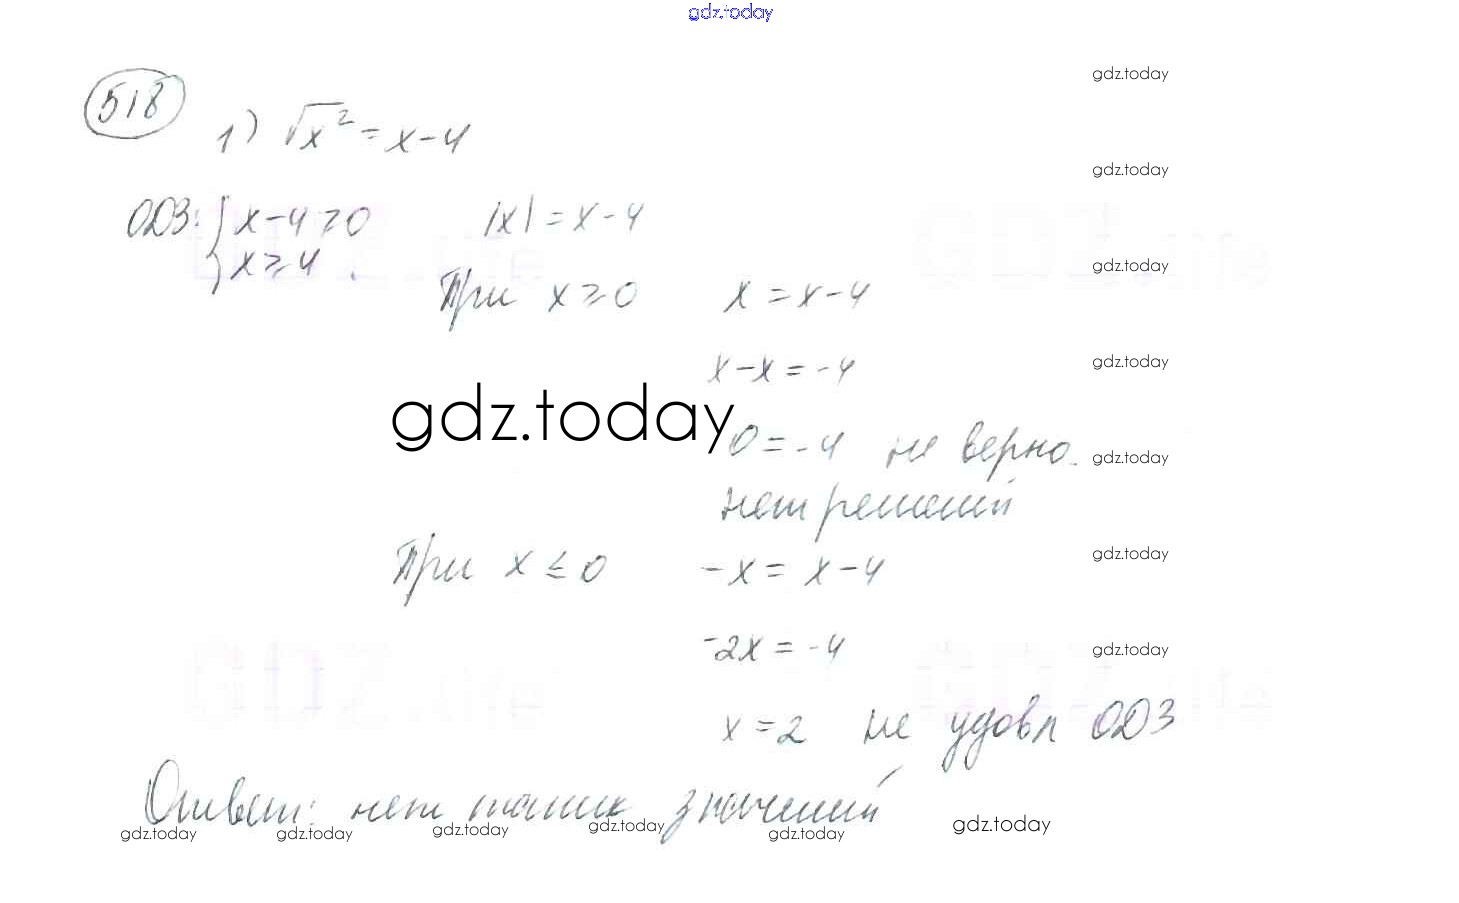 gdz.today
518
1) √x² = x-4
gdz.today
ОДЗ: { x-4≥0
x≥4.
|x| = x-4
gdz.today
При x≥0 x = x-4
gdz.today
x-x = -4
gdz.today
gdz.today
0 = -4 не верно.
gdz.today
нет решений
При x ≤ 0 -x = x-4
gdz.today
-2x = -4
gdz.today
x = 2 не удовл ОДЗ
Ответ: нет таких значений
gdz.today gdz.today gdz.today gdz.today gdz.today gdz.today